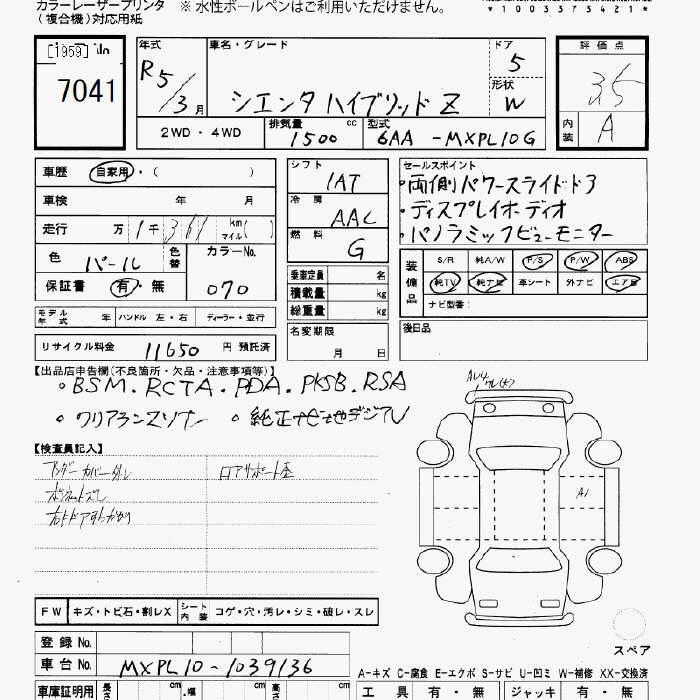 カラーレーザープリンタ ※ 水性ボールペンはご利用いただけません。
(複合機)対応用紙
*1003373421*
[1959]
7041
年式 R5/3月
車名・グレード シエンタ ハイブリッド Z
ドア 5
形状 W
評価点 3.5
内装 A
2WD・4WD
排気量 1500 cc
型式 6AA-MXPL10G
車歴 自家用・( )
シフト IAT
セールスポイント
・両側パワースライドドア
・ディスプレイオーディオ
・パノラミックビューモニター
車検 年 月
冷房 AAC
走行 万 1千 361 km マイル( )
燃料 G
色 パール 色替
カラーNo. 070
保証書 有・無
乗車定員 名
積載量 kg
総重量 kg
装備品 S/R 純A/W P/S P/W ABS
純TV 純ナビ 革シート 外ナビ エアB
ナビ型番:
モデル年式 年 ハンドル 左・右 ディーラー・並行
名変期限 月 日
後日品
リサイクル料金 11650 円 預託済
【出品店申告欄(不良箇所・欠品・注意事項等)】
・BSM.RCTA.PDA.PKSB.RSA
・クリアランスソナー ・純正ナビ地デジTV
【検査員記入】
アンダーカバー
ロアサポート歪
ボンネットズレ
A1
FW キズ・トビ石・割レX シート内装 コゲ・穴・汚レ・シミ・破レ・スレ
スペア
登録No.
車台No. MXPL10-1039136
A-キズ C-腐食 E-エクボ S-サビ U-凹ミ W-補修 XX-交換済
車庫証明用 長さ cm ・幅 cm 高さ cm
工具 有・無 ジャッキ 有・無